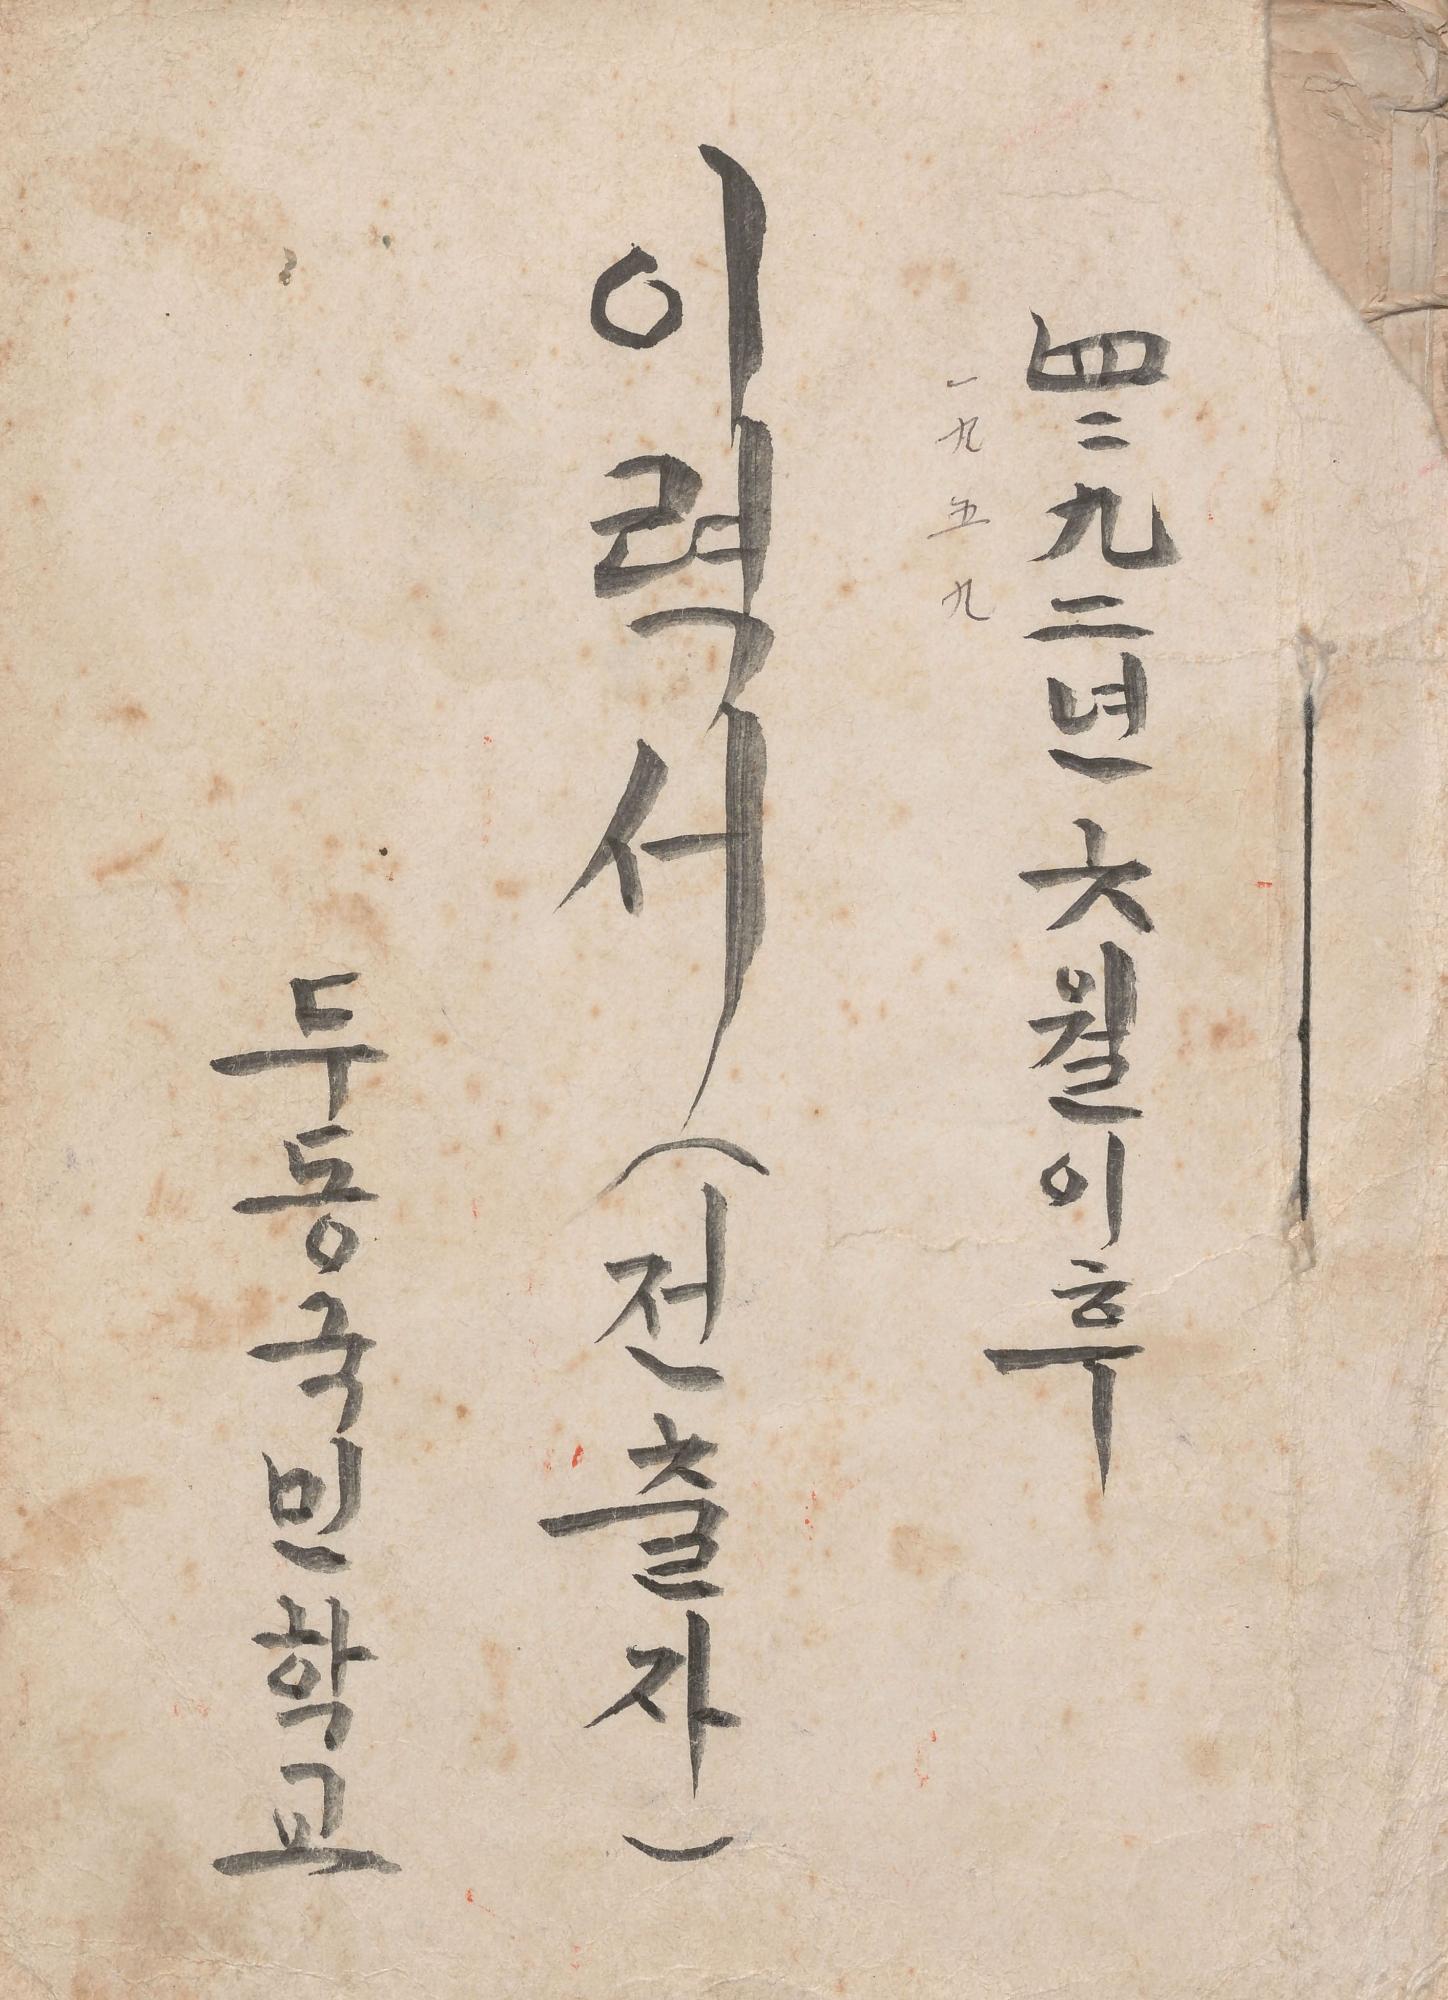 四二九二년六월이후
一九五九
이력서(전출자)
두동국민학교